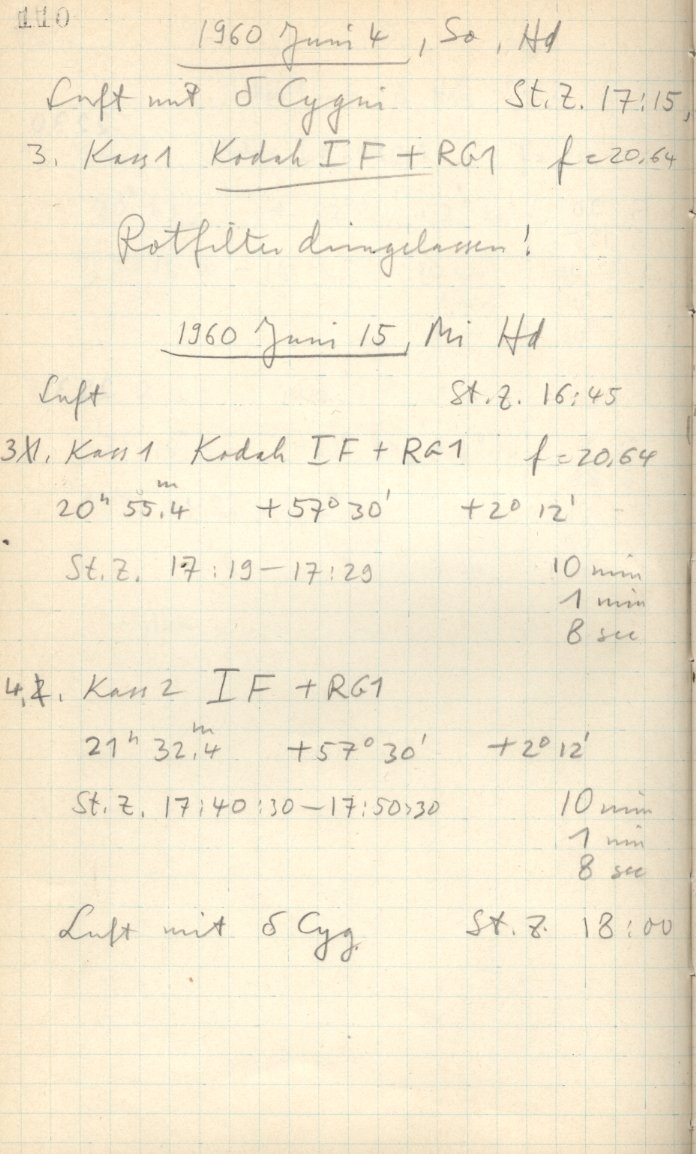 110
1960 Juni 4, So, Hd
Luft mit δ Cygni St.Z. 17:15,
3. Kass 1 Kodak IF + RG1 f = 20,64
Rotfilter dringelassen!
1960 Juni 15, Mi Hd
Luft St.Z. 16:45
3. Kass 1 Kodak IF + RG1 f = 20,64
20ʰ 55ᵐ.4 +57° 30' +2° 12'
St.Z. 17:19 – 17:29 10 min
1 min
8 sec
4. Kass 2 IF + RG1
21ʰ 32ᵐ.4 +57° 30' +2° 12'
St.Z. 17:40:30 – 17:50:30 10 min
1 min
8 sec
Luft mit δ Cyg St.Z. 18:00